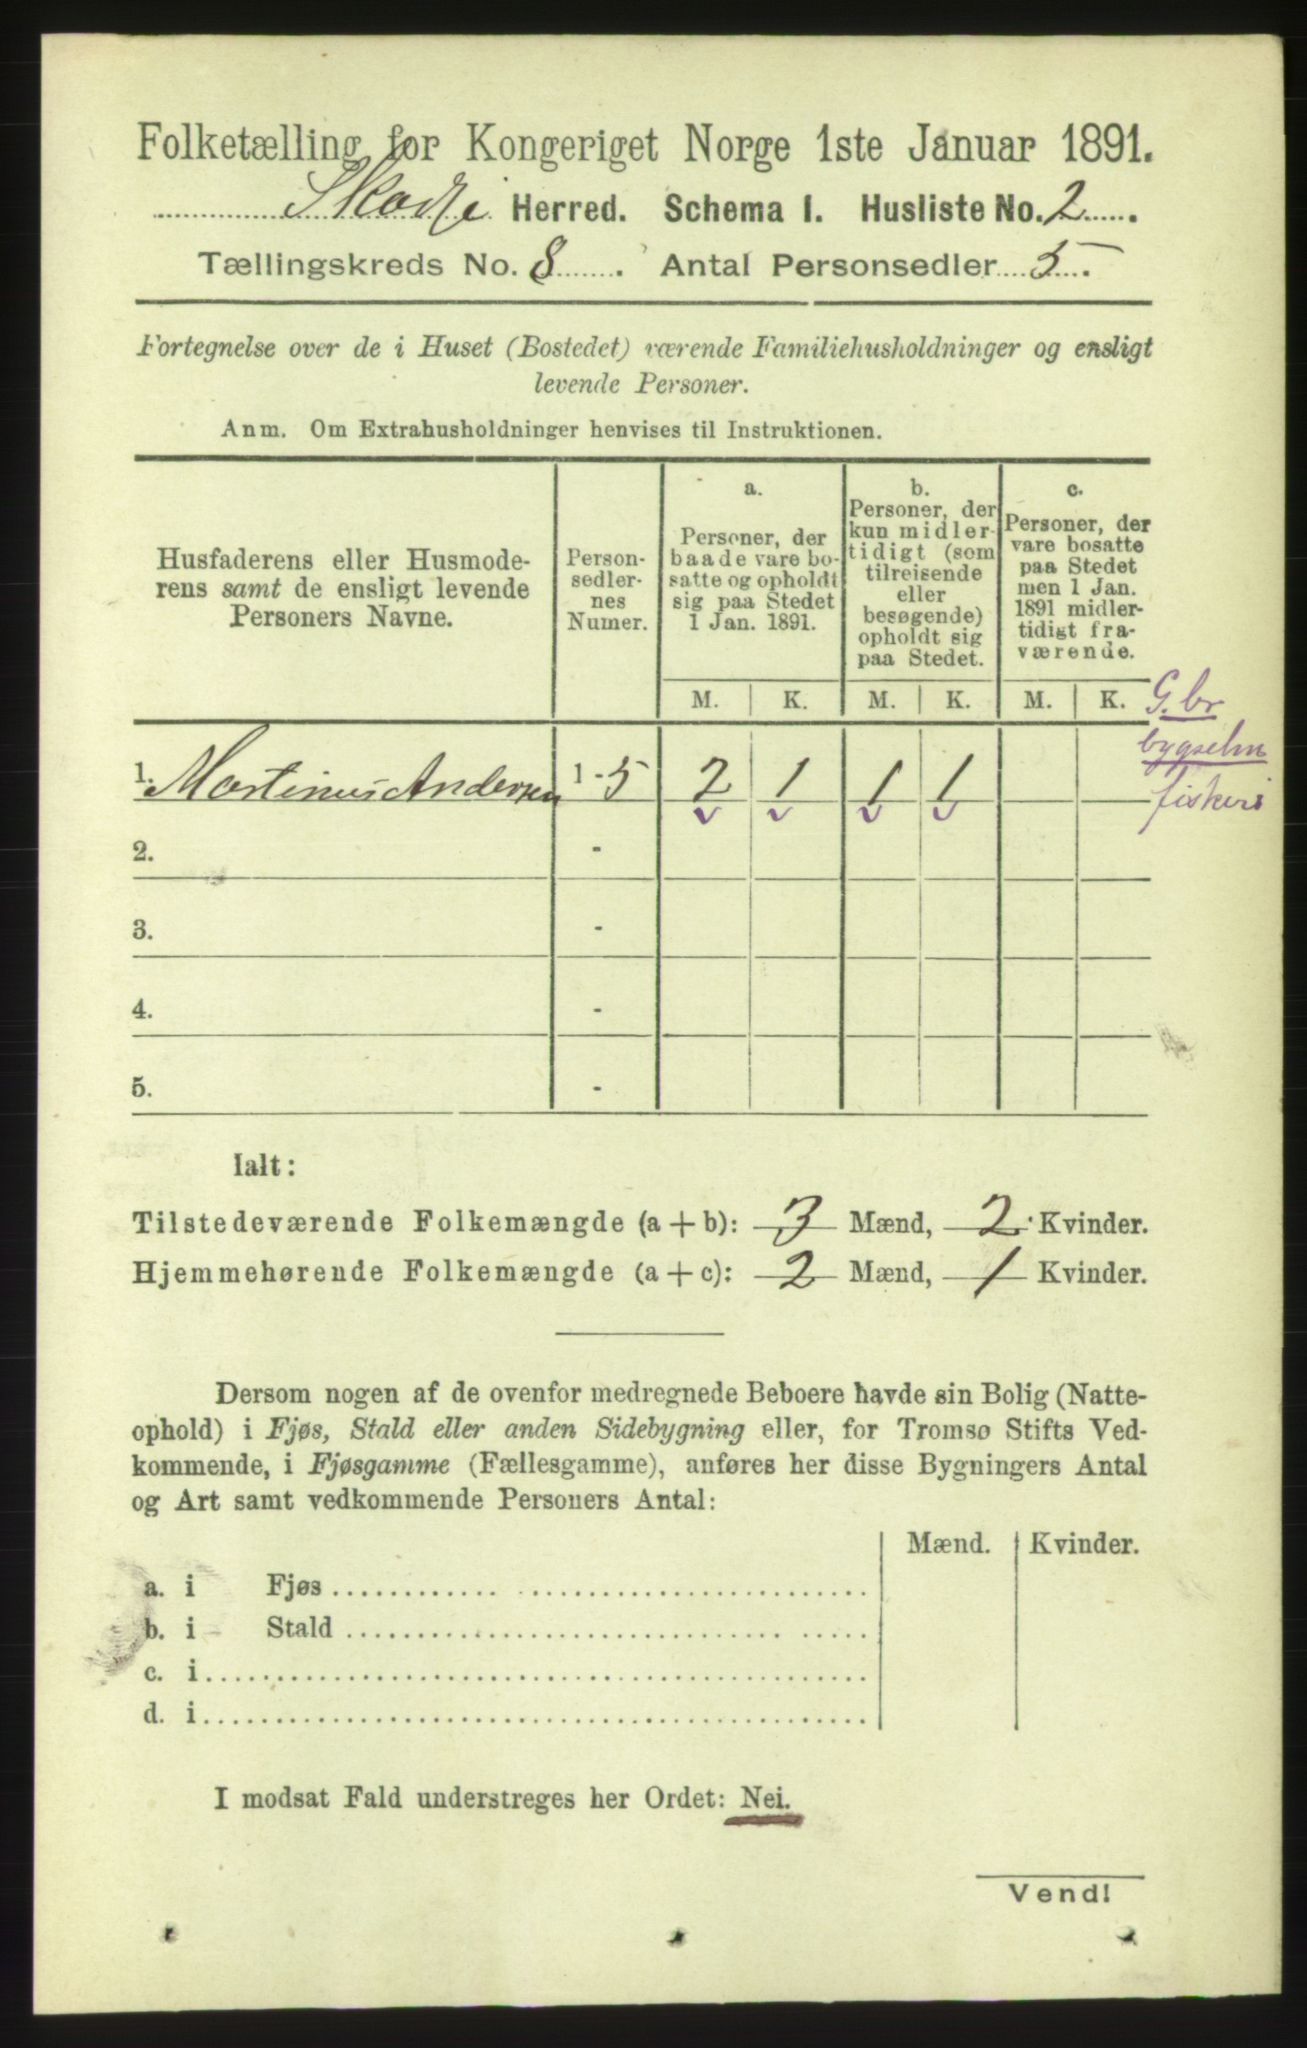 Folketælling for Kongeriget Norge 1ste Januar 1891.
Skodje Herred. Schema I. Husliste No. 2.
Tællingskreds No. 8. Antal Personsedler 5.
Fortegnelse over de i Huset (Bostedet) værende Familiehusholdninger og ensligt
levende Personer.
Anm. Om Extrahusholdninger henvises til Instruktionen.
Husfaderens eller Husmode-
rens samt de ensligt levende
Personers Navne.
Person-
sedler-
nes
Numer.
a.
Personer, der
baade vare bo-
satte og opholdt
sig paa Stedet
1 Jan. 1891.
b.
Personer, der
kun midler-
tidigt (som
tilreisende
eller
besøgende)
opholdt sig
paa Stedet.
c.
Personer, der
vare bosatte
paa Stedet
men 1 Jan.
1891 midler-
tidigt fra-
værende.
M. K. M. K. M. K.
G. br
bygselm
fiskeri
1. Martinus Andersen 1-5 2 1 1 1
2. -
3. -
4. -
5. -
Ialt:
Tilstedeværende Folkemængde (a + b): 3 Mænd, 2 Kvinder.
Hjemmehørende Folkemængde (a + c): 2 Mænd, 1 Kvinder.
Dersom nogen af de ovenfor medregnede Beboere havde sin Bolig (Natte-
ophold) i Fjøs, Stald eller anden Sidebygning eller, for Tromsø Stifts Ved-
kommende, i Fjøsgamme (Fællesgamme), anføres her disse Bygningers Antal
og Art samt vedkommende Personers Antal:
Mænd. Kvinder.
a. i Fjøs
b. i Stald
c. i
d. i
I modsat Fald understreges her Ordet: Nei.
Vend!